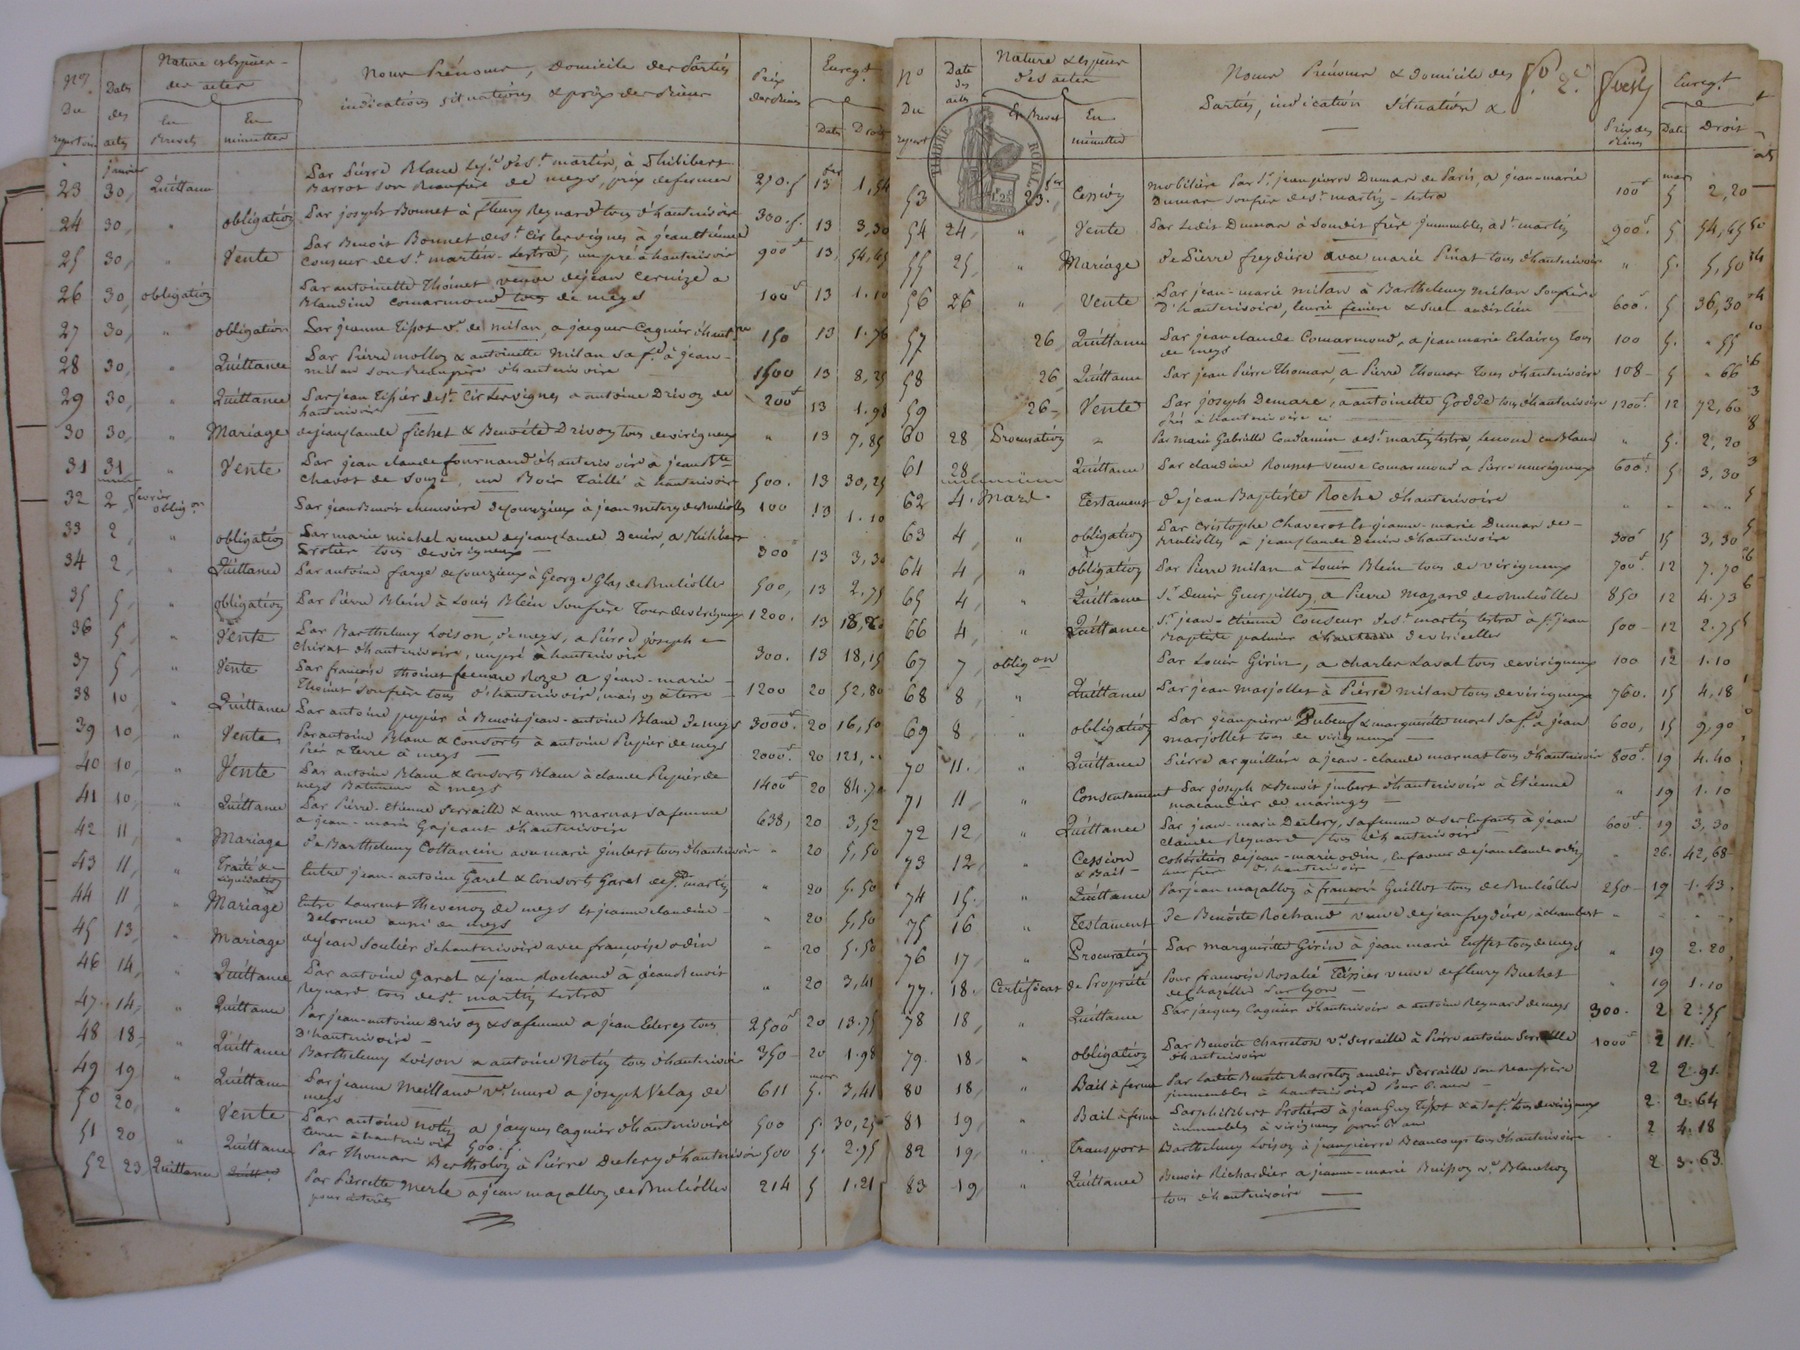 Nos
Du
repertoire
Dates
des
actes
Nature & espèces
des actes
En
Brevets
En
minuttes
Noms Prénoms, Domicile des Parties
indications situations & prix des Biens
Prix
des Biens
Enregt.
Dates
Droits
janvier
23 30, Quittance Par Pierre Blanc de St. martin, à Philibert
Barrot son Beaufrère de meys, prix de ferme 250.f 13 1,54
24 30, " obligation Par joseph Bonnet à fleury Reynard tous d'hauterivoire 300.f. 13 3,30
25 30, " Vente Par Benoit Bonnet de St. Cir les vignes à jean étienne
Couzeur de St. martin-Lestra, un pré à hauterivoire 900f 13, 54,45
26 30, obligation Par antoinette Thoinet veuve dejean Cernize a
Blandine comarmond tous de meys 100f 13 1.10
27 30, " obligation Par jeanne Tipot ve. de milan, a jacques Cagnier 150 13 1.76
28 30, " Quittance Par Pierre mollon & antoinette milan sa fe à jean-
milan son Beaupère d'hauterivoire 1500 13 8,25
29 30, " Quittance Par jean Tissier de St. Cir les vignes a antoine Drivon de
hauterivoire 200f 13 1.98
30 30, " Mariage dejean claude fichet & Benoite Drivon tous de virigneux " 13 7,85
31 31, " Vente Par jean claude fournand d'hauterivoire à jean Bte
Chavot de Souzi, un Bois Taillé à hauterivoire 500. 13 30,25
32 2, fevrier obligon Par jean Benoit de Courzieux à jean de Brulioles 100 13 1.10
33 2, " obligation Par marie michel veuve dejean claude Denis, a Philibert
Protier tous de virigneux 300 13 3,30
34 2, " Quittance Par antoine farge de Courzieux à George Glas de Bruliolle 500, 13 2.75
35 5, " obligation Par Pierre Blein à Louis Blein son frère Tous de virigneux 1200. 13 13,20
36 5, " Vente Par Barthelemy Loison, de meys, a Pierre joseph
Chirat d'hauterivoire, un pré à hauterivoire 300. 13 18,15
37 5, " Vente Par françoise Thoinet femme Roze a jean-marie-
Thoinet son frère tous d'hauterivoire, maison & terre 1200 20 52,80
38 10, " Quittance Par antoine pupier à Benoit jean-antoine Blanc de meys 3000f 20 16,50
39 10, " Vente Par antoine Blanc & Consorts à antoine Pupier de meys
Prés & Terre à meys 2000f 20 121,"
40 10, " Vente Par antoine Blanc & Consorts Blanc à claude Pupier de
meys Batiment à meys 1400f 20 84.70
41 10, " Quittance Par Pierre-Etienne Serraille & anne marnas sa femme
a jean-marie Gajeant d'hauterivoire 638, 20 3,52
42 11, " Mariage de Barthelemy Cottancin avec marie Gimbert tous d'hauterivoire " 20 5,50
43 11, " Traité de
Liquidation Entre jean-antoine Garel & Consorts Garel de St. martin " 20 5.50
44 11, " Mariage Entre Laurent Thevenon de meys et jeanne claudine-
Delorme aussi de meys " 20 5,50
45 13, " Mariage dejean Soulier d'hauterivoire avec françoise odin " 20 5.50
46 14, " Quittance Par antoine Garel & jean Rochand à jean Benoit
Reynard tous de St. martin Lestra " 20 3,41
47. 14, " Quittance Par jean-antoine Drivon & sa femme a jean Ecleres tous
D'hauterivoire - 2500f 20 13.75
48 18, " Quittance Barthelemy Loison a antoine Notin tous d'hauterivoire 350 20 1.98
49 19 " Quittance Par jeanne Meilland ve. mure a joseph Velay de
meys 611 mars 5. 3,41
50 20, " Vente Par antoine notin a jacques Cagnier d'hauterivoire
terres à hauterivoire 500.f. 500 5. 30,25
51 20 " Quittance Par Thomas Bertholon à Pierre Dulery d'hauterivoire 500 5. 2.75
52 23. Quittance Par Pierrette Merle a jean mazallon de Brulioles
pour interets 214 5 1.21
No
Du
repert
Date
des
actes
Nature & espèces
des actes
En Brevet
En
minuttes
Noms Prénoms & domicile des
Parties, indication situation &
fo. 2e.
Prix des
Biens
Enregt.
Date
Droit
TIMBRE ROYAL
53 23. fer Cession mobilière Par Sr. jean pierre Dumas de Paris, a jean-marie
Dumas son frère de St. martin-Lestra 100f mars 5 2,20
54 24, " Vente Par Ledit Dumas à Sondit frère immeubles a St. martin 900f. 5. 54,45
55 25, " Mariage de Pierre freydière avec marie Pinat tous d'hauterivoire " 5. 5,50
56 26 " Vente Par jean-marie milan à Barthelemy milan son frère
D'hauterivoire, leurie feniere & suel audit lieu 600f. 5 36,30
57 26, Quittance Par jean claude Comarmond, a jean marie Eclaircy tous
de meys 100 5. " 55
58 26 Quittance Par jean Pierre Thomas, a Pierre Thomas Tous d'hauterivoire 108- 5 " 66
59 26- Vente Par joseph Demare, a antoinette Godde tous d'hauterivoire
Prés a hauterivoire 1200f. 12 72,60
60 28 Procuration " Par marie Gabrielle Condamin de St. martin Lestra, en Blanc " 5. 2,20
61 28, " Quittance Par claudine Rousset veuve comarmond a Pierre murigneux 600f. 5 3,30
62 4. Mars. Testament de jean Baptiste Roche d'hauterivoire " " " "
63 4, " obligation Par Cristophe Chaverot et jeanne-marie Dumas de-
Brulioles a jean claude Denis d'hauterivoire 300f 15 3,30
64 4, " obligation Par Pierre milan à Louis Blein tous de virigneux 700f. 12 7.70
65 4, " Quittance Sr. Denis Guerpillon, a Pierre Mazard de Brulioles 850 12 4.73
66 4, " Quittance Sr. jean-étienne Couzeur de St. martin Lestra à Sr. jean
Baptiste palmier de viricelles 500- 12 2.75
67 7, obligon Par Louis Girin, a charles Laval tous de virigneux 100 12 1.10
68 8 " Quittance Par jean marjollet à Pierre milan tous de virigneux 760. 15 4,18
69 8, " obligation Par jean pierre Dubeuf & marguerite morel sa fe. a jean
marjollet tous de virigneux 600, 15 9,90
70 11. " Quittance Pierre arquillière a jean-claude marnas tous d'hauterivoire 800f. 19 4.40
71 11, " Consentement Par joseph & Benoit jimbert d'hauterivoire à Etienne
de maringes " 19 1.10
72 12, " Quittance Par jean-marie Dulery, sa femme & ses Enfants à jean
claude Reynard tous d'hauterivoire 600f. 19 3,30
73 12, " Cession
& Bail Cohéritiers dejean-marie odin, en faveur dejean claude odin
leur frère D'hauterivoire - " 26. 42,68
74 15. " Quittance Par jean mazallon à françois Guillot tous de Brulioles 250- 19 1.43
75 16 " Testament De Benoite Rochand, veuve dejean freydière, a chambost " " "
76 17, " Procuration Par marguerite Girin à jean marie tous de meys " 19 2.20
77. 18. Certificat de Propriété Pour françoise Rosalie Teissier veuve de fleury Buchet
de Chazelles Sur Lyon - " 19 1.10
78 18, " Quittance Par jacques Cagnier d'hauterivoire a antoine Reynard de meys 300. 2 2.75
79. 18. " obligation Par Benoite Charreton ve. Serraille à Pierre antoine Serraille
d'hauterivoire 1000f 2 11.
80 18, " Bail à ferme Par Ladite Benoite charreton audit Serraille son Beaufrère
immeubles à hauterivoire Pour 6. ans - 2 2.91.
81 19, " Bail à ferme Par philibert Protière à jean Guy Tipot & à sa fe. tous de virigneux
immeubles à virigneux pour 6 ans 2. 2.64
82 19, " Transport Barthelemy Loison à jean pierre Beaucoup tous d'hauterivoire 2 4.18
83 19, " Quittance Benoit Richardier a jeanne-marie Buisson ve. Blanchon
tous d'hauterivoire 2 3.63